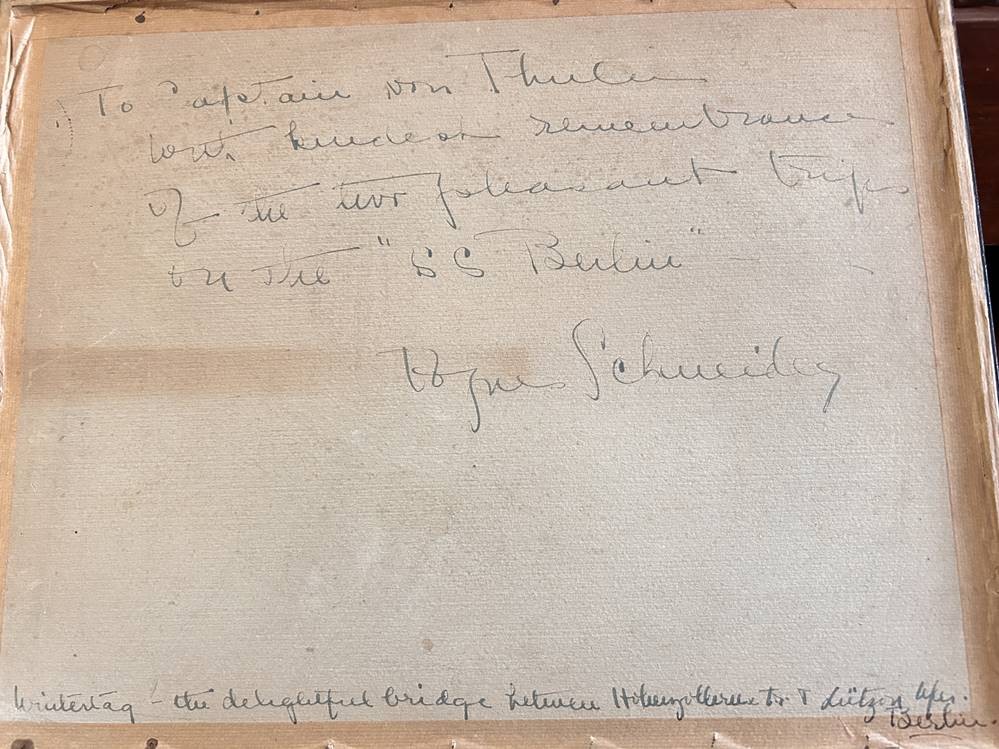 To Captain von Thulen
with kindest remembrance
of the two pleasant trips
on the "SS Berlin"
Schneider
Wintertag - the delightful bridge between Hohenzollern Str. + Lützow Ufer.
Berlin.